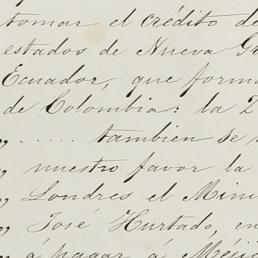 tomar el crédito de
estados de Nueva Gr
Ecuador, que form
de Colombia: la 2
„ ..... tambien se
„ nuestro favor la
„ Londres el Mini
„ José Hurtado, en
„ á pagar á Méji